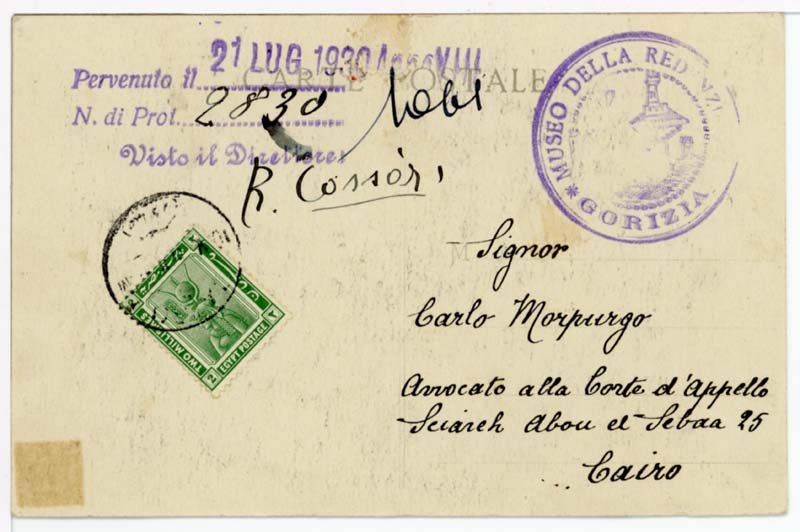 21 LUG 1930 Anno VIII
CARTE POSTALE
Pervenuto il
N. di Prot. 2830
Visto il Direttore:
R. Cossàr,
MUSEO DELLA REDENZI
* GORIZIA
TWO MILLIEMES
2 EGYPT POSTAGE ٢
Signor
Carlo Morpurgo
Avvocato alla Corte d'Appello
Sciareh Abou el Sebaa 25
Cairo